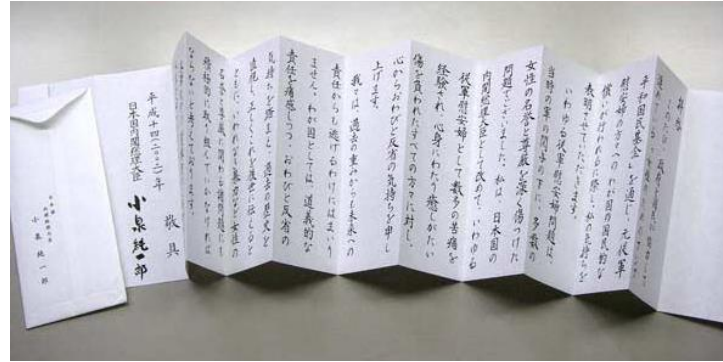 拝啓
このたび、政府と国民が
平和国民基金」を通じ、元従軍
慰安婦の方々へのわが国の国民的な
償いが行われるに際し、私の気持ちを
表明させていただきます。
いわゆる従軍慰安婦問題は、
当時の軍の関与の下に、多数の
女性の名誉と尊厳を深く傷つけた
問題でございました。私は、日本国の
内閣総理大臣として改めて、いわゆる
従軍慰安婦として数多の苦痛を
経験され、心身にわたり癒しがたい
傷を負われたすべての方々に対し、
心からおわびと反省の気持ちを申し
上げます。
我々は、過去の重みからも未来への
責任からも逃げるわけにはまいり
ません。わが国としては、道義的な
責任を痛感しつつ、おわびと反省の
気持ちを踏まえ、過去の歴史を
直視し、正しくこれを後世に伝えると
ともに、いわれなき暴力など女性の
名誉と尊厳に関わる諸問題にも
積極的に取り組んでいかなければ
ならないと考えております。
敬具
平成十四(二〇〇二)年
日本国内閣総理大臣 小泉純一郎
小泉純一郎